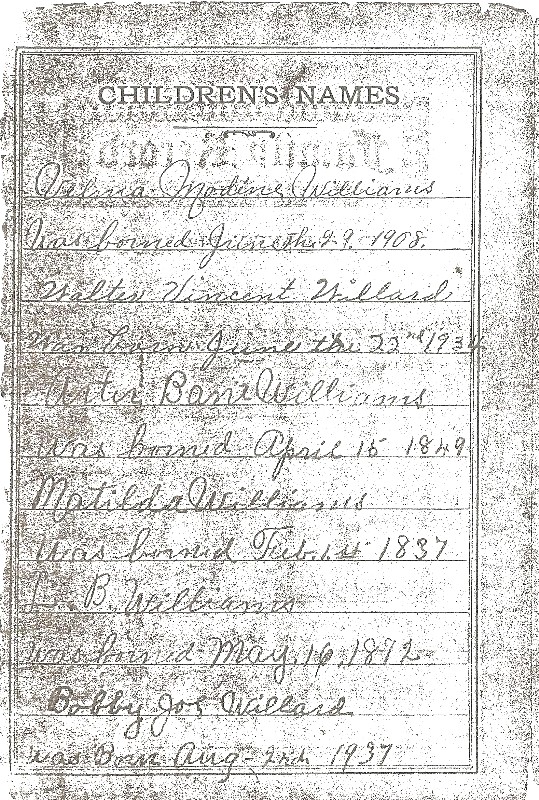 CHILDREN'S NAMES
Velma Modine Williams
Was borned June the 29. 1908.
Walter Vincent Willard
Was born June the 22nd 1934
Williams
Was borned April 15 1849
Matilda Williams
Was borned Feb. 1st 1837
L. B. Williams
Was borned May, 16, 1872
Bobby Joe Willard
Was Born Aug - 2nd 1937